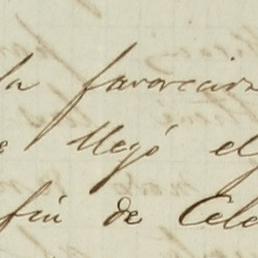 la favorecida
llegó el
fin de Cele